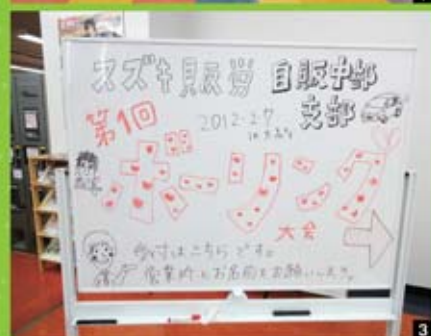 スズキ販労 自販中部
支部
第1回
2012.2.7
ボーリング
大会
受付はこちらです。
営業所とお名前をお願いします。
3